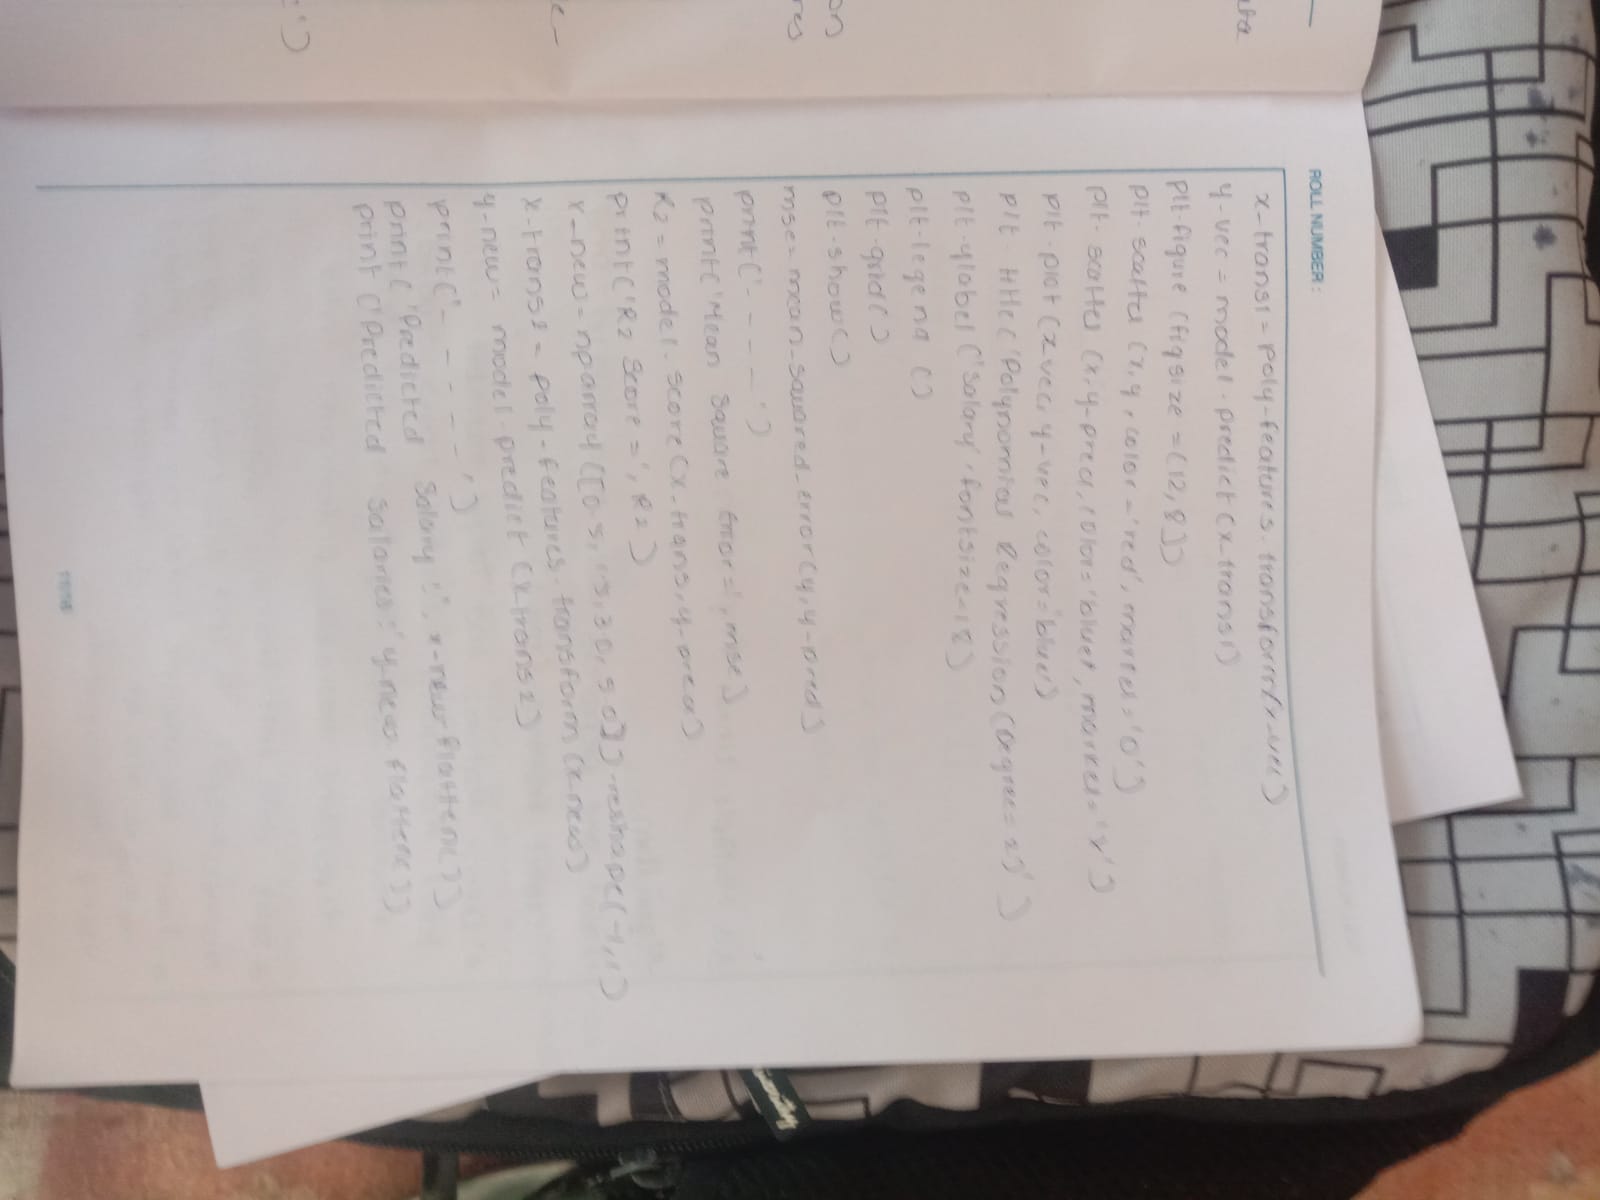 ata
on
res
e-
:')
ROLL NUMBER:
x-trans1 = poly-features.transform(x-vec)
y-vec = model.predict(x-trans1)
plt.figure(figsize=(12,8))
plt.scatter(x,y,color='red',marker='o')
plt.scatter(x,y-pred,color='blue',marker='v')
plt.plot(xvec,y-vec,color='blue')
plt.title('Polynomial Regression(Degree=2)')
plt.ylabel('salary',fontsize=18)
plt.legend()
plt.grid()
plt.show()
mse=mean_squared_error(y,y-pred)
print('-----')
print('Mean Square Error=',mse)
R2=model.score(x-trans,y-pred)
print('R2 Score=',R2)
x-new=nparray([0.5,15,30,50]).reshape(-1,1)
x-trans2=poly-features.transform(x-new)
y-new=model.predict(x-trans2)
print('-----')
print('Predicted Salary:', x-new.flatten())
print('Predicted Salaries:' y-new.flatten())